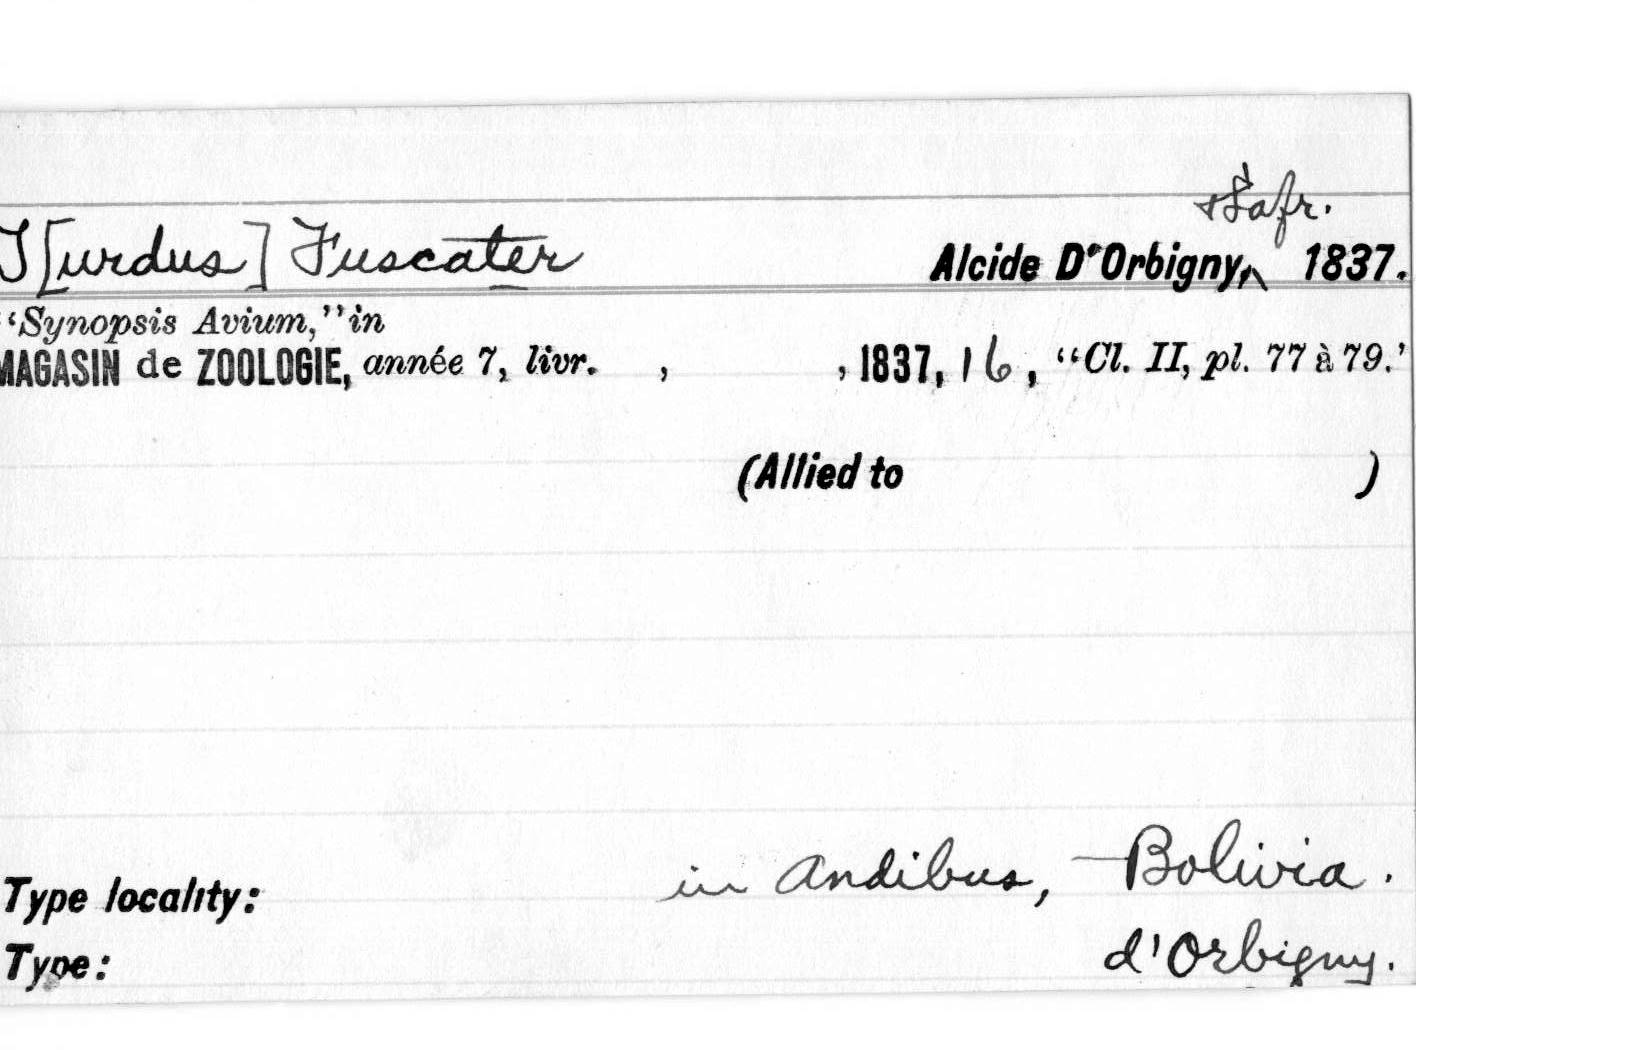 T[urdus] Fuscater Alcide D'Orbigny, & Lafr. 1837.
"Synopsis Avium," in
MAGASIN de ZOOLOGIE, année 7, livr. , , 1837, 16, "Cl. II, pl. 77 à 79."
(Allied to )
Type locality: in Andibus, — Bolivia.
Type: d'Orbigny.